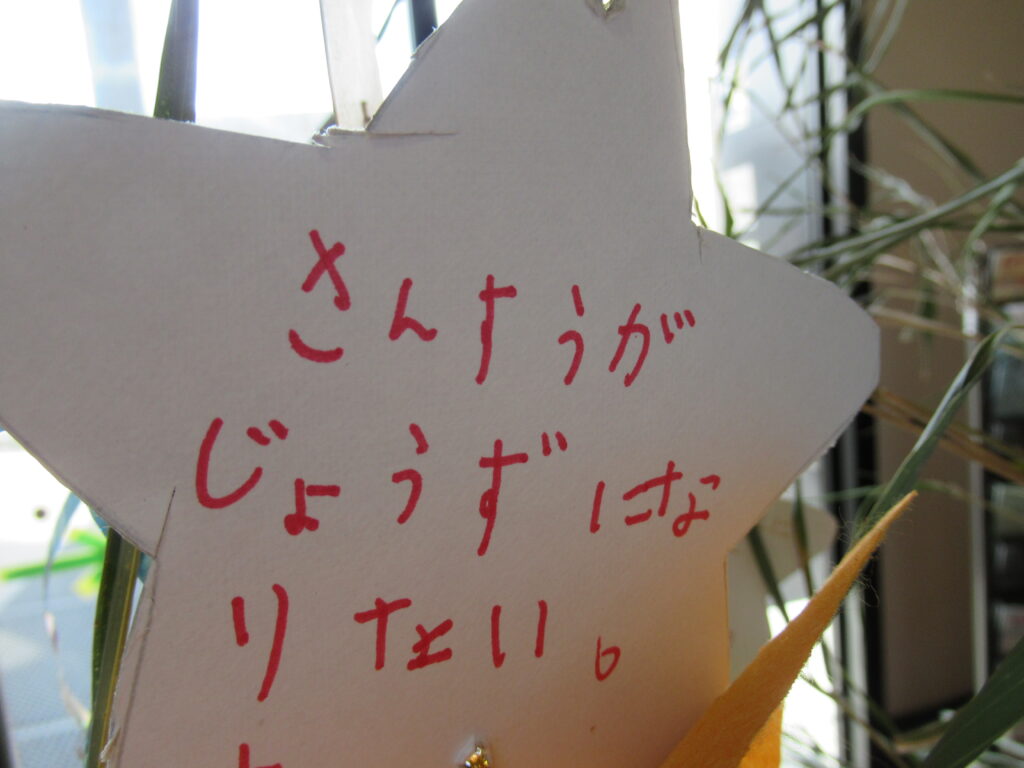 さんすうが
じょうずにな
りたい。